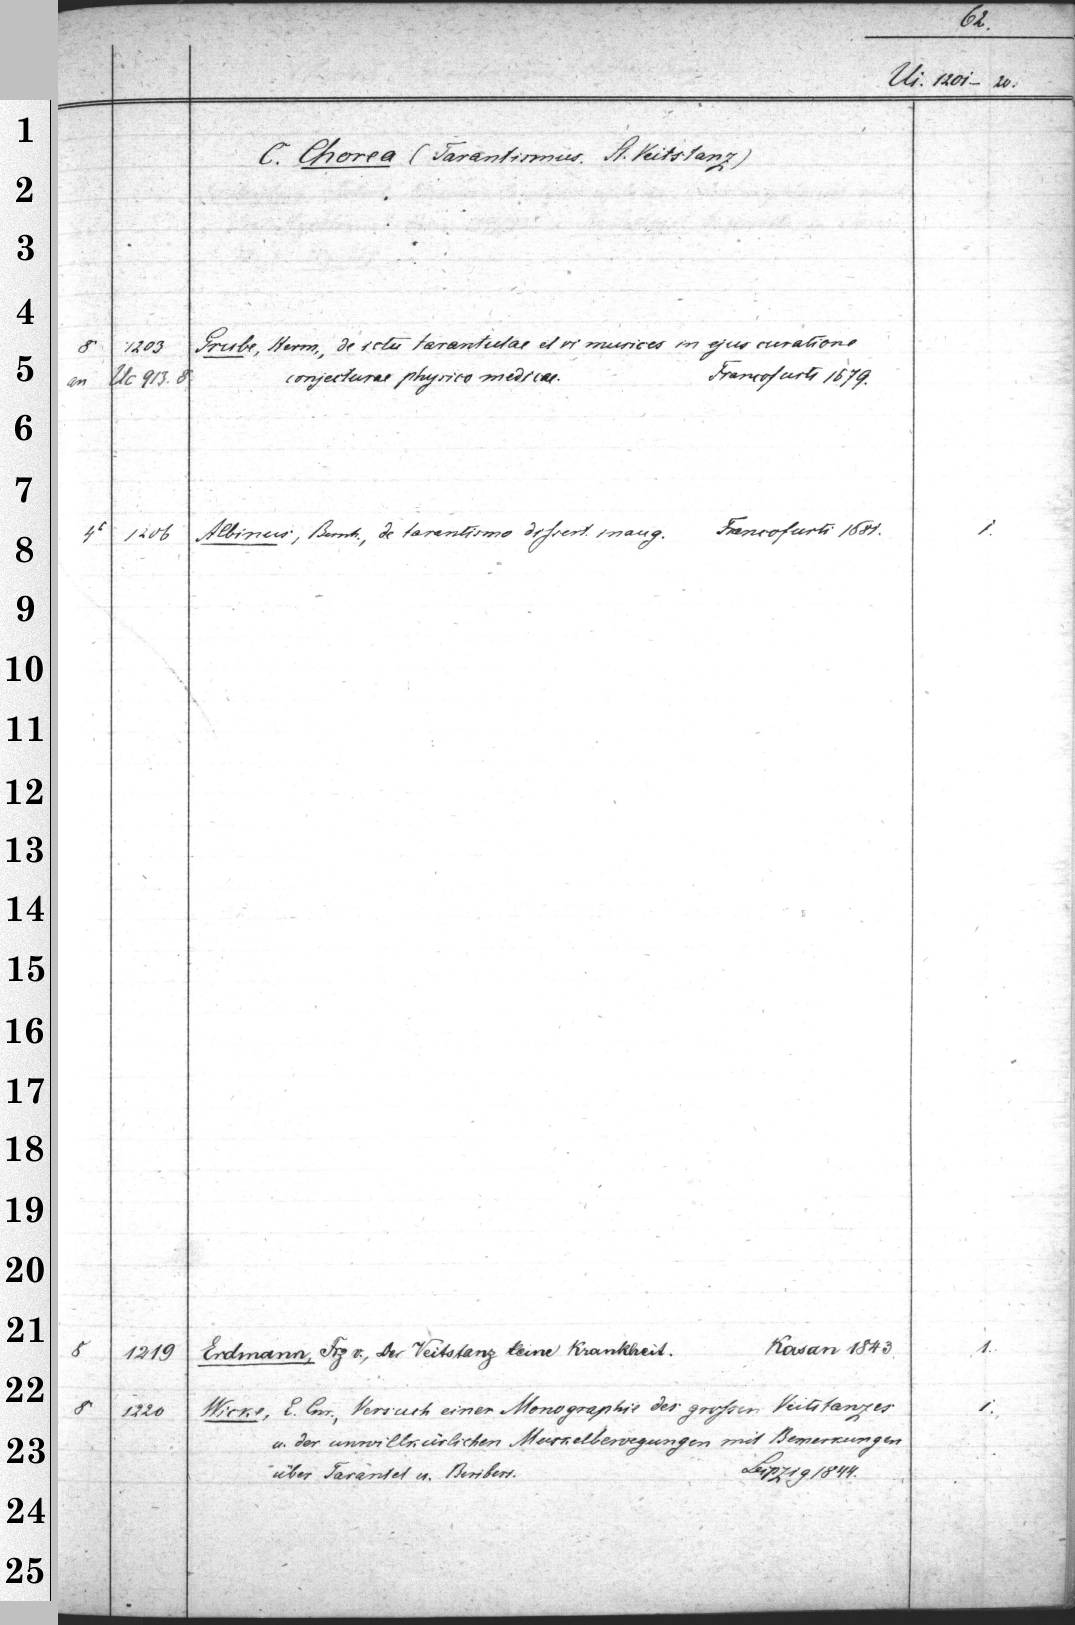 62.
Ui. 1201– 20.
1
2
3
4
5
6
7
8
9
10
11
12
13
14
15
16
17
18
19
20
21
22
23
24
25
C. Chorea (Tarantismus. St. Veitstanz)
8 1203 Grube, Herm., de ictu tarantulae et vi musices in ejus curatione
an Uc 913. 8 conjecturae physico medicae. Francofurti 1679.
4° 1206 Albinus, Bernh., de tarantismo dissert. inaug. Francofurti 1681. 1.
8 1219 Erdmann, Frz v., Der Veitstanz keine Krankheit. Kasan 1843 1.
8 1220 Wicke, E. Cnr., Versuch einer Monographie des grossen Veitstanzes 1.
u. der unwillkürlichen Muskelbewegungen mit Bemerkungen
über Tarantel u. Beriberi. Leipzig 1844.